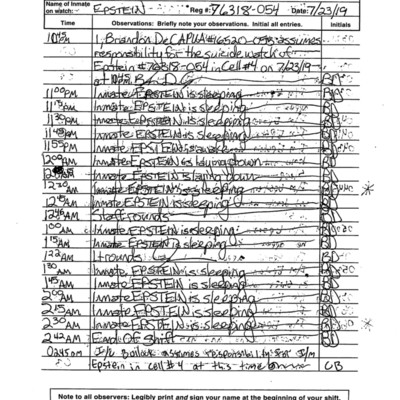 Name of Inmate
on watch: EPSTEIN Reg #: 76318-054 Date: 7/23/19
Time Observations: Briefly note your observations. Initial all entries. Initials
1045PM I, Brandon DeCAPUA assumes
responsibility for the suicide watch of
Epstein #76318-054 in Cell #4 on 7/23/19
at 1045
1100PM Inmate EPSTEIN is sleeping BD
1115PM Inmate EPSTEIN is sleeping BD
1130PM Inmate EPSTEIN is sleeping BD
1145PM Inmate EPSTEIN is sleeping BD
1155PM Inmate EPSTEIN is awake BD
1200AM Inmate EPSTEIN is laying down BD
Inmate EPSTEIN is laying down BD
1230AM Inmate EPSTEIN is sleeping BD *
Inmate EPSTEIN is sleeping BD
1248AM Staff rounds BD
100AM Inmate EPSTEIN is sleeping BD
115AM Inmate EPSTEIN is sleeping BD
122AM Lt rounds BD
130AM Inmate EPSTEIN is sleeping BD
145AM Inmate EPSTEIN is sleeping BD
200AM Inmate EPSTEIN is sleeping BD
215AM Inmate EPSTEIN is sleeping BD
230AM Inmate EPSTEIN is sleeping BD *
242AM End Of Shift BD
0245 I/C assumes responsibility for I/m
Epstein in cell #4 at this time CB
Note to all observers: Legibly print and sign your name at the beginning of your shift.